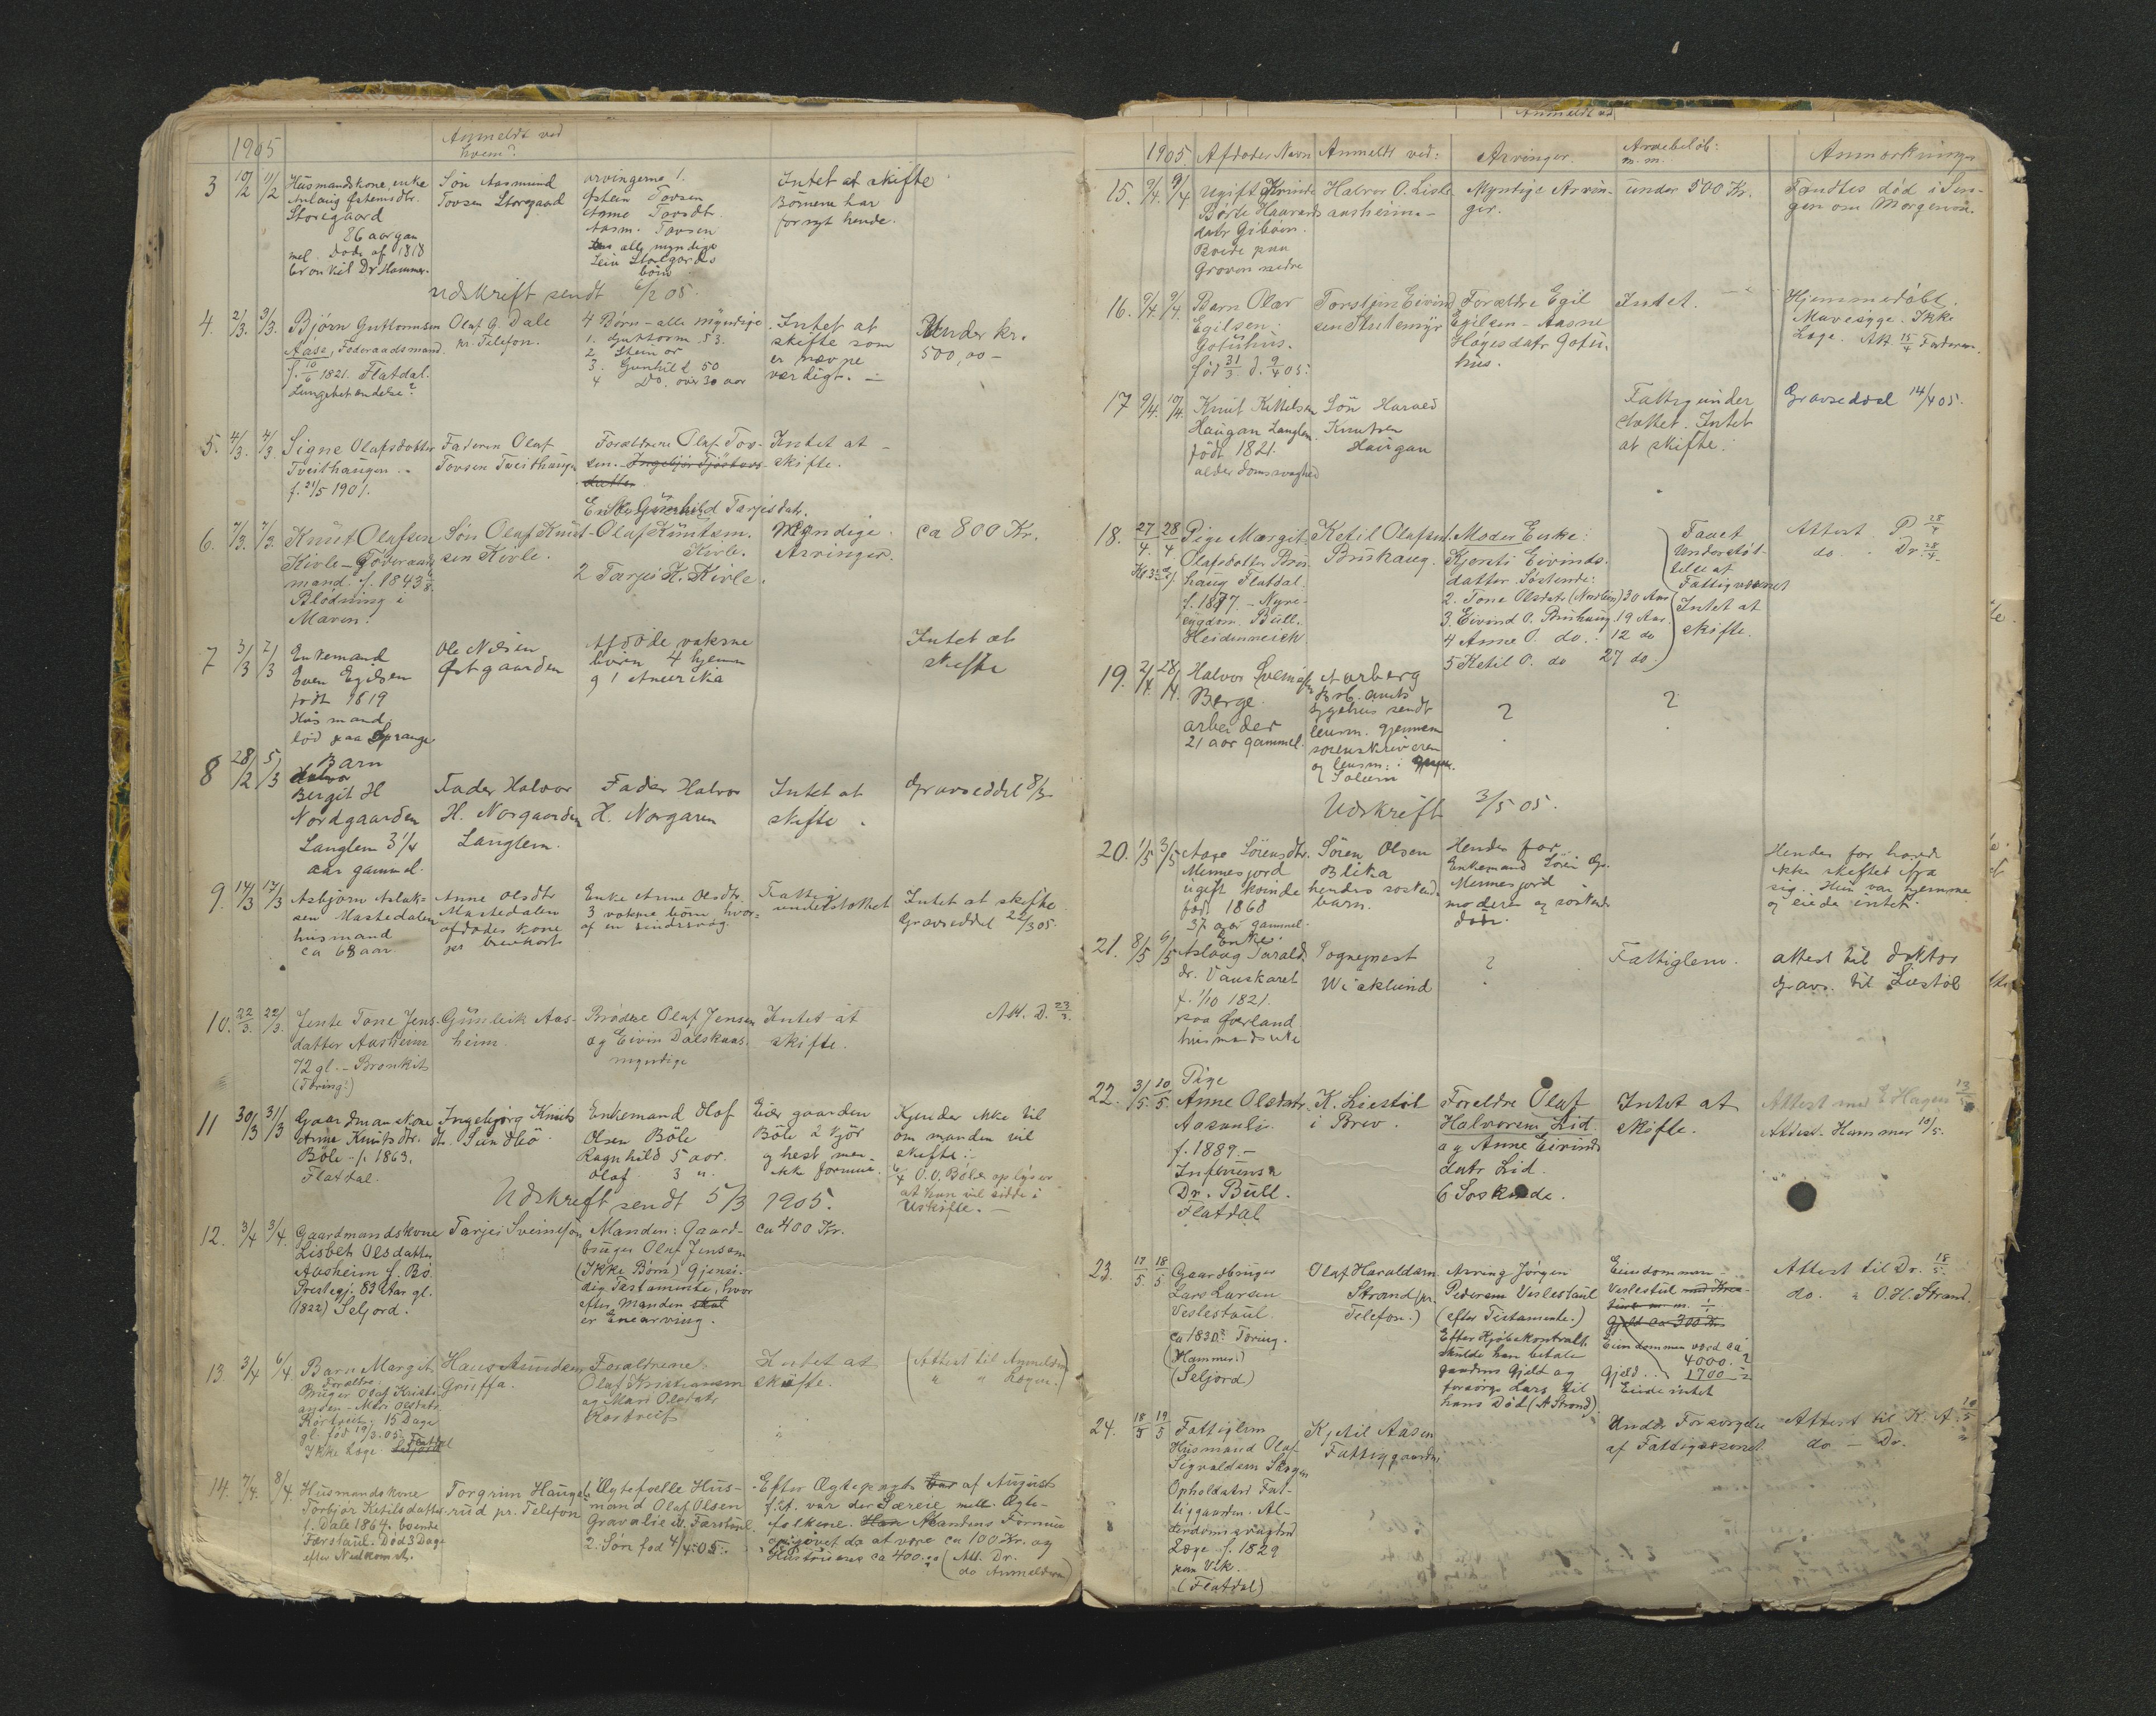 1905
Anmeldt ved
hvem?
3 10/2 11/2
Husmandskone, enke
Anlaug Østensdtr.
Storegaard
86 aar gam
mel. Døde af 1818
Er on kil Dr Hammer.
Søn Aasmund
Tovsen Storegaard
arvingerne 1.
Østein Tovsen
Anne Tovsdtr.
Aasm. Tovsen
alle myndige
Storgards
børn
Intet at skifte
Børnene har
forsyt hende.
Udskrift sendt 6/2 05.
4. 2/3. 3/3.
Bjørn Guttormsen
Aase, Føderaadsmand.
f. 10/6 1821. Flatdal.
Lungebetændelse?
Olaf G. Dale
pr. Telefon.
4 Børn - alle myndige
1. Guttorm 53.
2. Steinar
3. Gunhild 50
4 Do. over 30 aar
Intet at
skifte som
er nævne
værdigt. —
Under kr.
500,00 —
5. 4/3. 4/3.
Signe Olafsdotter
Tveithaugen..
f. 21/5 1901.
Faderen Olaf
Tovsen Tveithaugen
Forældrene Olaf Tov-
sen. Ingebjør Tjøstovs-
datter
Gunhild Tarjeidatr.
Intet at —
skifte.
6. 7/3. 7/3.
Knut Olafsen
Kivle - Føderaads
mand. f. 1843 6/8.
Blødning i
Maven.
Søn Olaf Knut-
sen Kivle.
Olaf Knutsen.
Kivle.
2 Tarjei K. Kivle.
Myndige
Arvinger.
ca 800 Kr.
7 3/3 7/3
Enkemand
Even Egilsen
født 1819
Husmand.
død paa Sprange
Ole Nilsen
Østgaarden
Afdøde voksne
børn 4 hjemme
og 1 Amerika
Intet at
skifte
8 28/2 5/3
Barn
Halvor
Bergit H
Nordgaarden
Langlem 3 1/4
aar gammel.
Fader Halvor
H. Norgaarden
Langlem.
Fader Halvor
H. Norgaren
Intet at
skifte.
Gravseddel 8/3
9. 14/3 17/3
Asbjørn Aslak-
sen Mastedalen
husmand
ca 68 aar
Anne Olsdtr
Mastedalen
afdødes kone
per brevkort
Enke Anne Olsdtr.
3 voksne børn hvor-
af en sindssvag.
Fattig
understøttet
Intet at skifte
Gravseddel 22/3 05.
10. 22/3. 22/3.
Jente Tone Jens-
datter Aasheim
72 gl. - Bronkit
(Tæring?)
Gunleik Aas-
heim.
Brødre Olaf Jensen
og Eivin Dalskaas.
myndige
Intet at
skifte.
Att. D. 23/3.
11 30/3 31/3
Gaardmanskone
Anne Knutsdtr.
Bøle - f. 1863.
Flatdal.
Ingebjørg Knuts
dtr. Sundbø.
Enkemand Olof
Olsen Bøle
Ragnhild 5 aar.
Olof 3 "
Eier gaarden
Bøle 2 kjør
og hest men
ikke formue.
Kjender ikke til
om manden vil
skifte.
6/4 O.O. Bøle oplyser
at han vil sidde i
Uskifte. —
Udskrift sendt 5/3 1905.
12. 3/4 3/4.
Gaardmandskone
Lisbet Olsdatter
Aasheim f. Bø
Prestegj. 83 Aar gl.
(1822) Seljord.
Tarjei Sveinsøn
Manden: Gaard-
bruger Olaf Jensen
(Ikke Børn) Gjensi-
dig Testamente, hvor
efter Manden skal
er Enearving.
ca 400 Kr.
13. 3/4 6/4.
Barn Margit
Forældre:
Bruger Olaf Kristi-
ansen - Mari Olsdatr.
Rortveit: 15 Dage
gl. fød 19/3.05. Flatdal
Ikke Læge. Seljord
Hans Amundsen
Gruffa.
Forældrene
Olaf Kristiansen
og Mari Olsdatr
Rortveit
Intet at
skifte.
(Attest til Anmelderen
" " Lægen.)
14. 7/4. 8/4.
Husmandskone
Torbjør Ketilsdatter
f. Dale 1864. boende
Færstaul. Død 3 Dage
efter Nedkomst.
Torgrim Hauge-
rud pr. Telefon
1. Ægtefælle Hus-
mand Olaf Olsen
Gravalie v. Færstaul.
2. Søn fød 4/4.05.
Efter Ægtepagt af August
f. A. var der Særeie mell. Ægte-
folkene. Mandens Formue
opgivet da at være ca 100 Kr. og
Hustruens ca 400. (Att. Dr.
do Anmelderen)
Anmeldt ved
1905.
Afdødes Navn
Anmeldt ved:
Arvinger.
Arvebeløb:
m. m.
Anmærkninger
15. 9/4. 9/4
Ugift Kvinde
Børte Haavards
datr Gibøen.
Boede paa
Groven nedre
Halvor O. Lisle
aasheim. —
Myndige Arvin-
ger.
under 500 Kr.
Fandtes død i Sen-
gen om Morgenen.
16. 9/4. 9/4.
Barn Olav
Egilsen.
Gotuhus.
fød 31/3. d. 9/4 05.
Torstein Eivind
sen Stutemyr
Forældre Egil
Egilsen - Aasne
Høgesdatr Gotu-
hus.
Intet. —
Hjemmedøbt.
Mavesyge. Ikke
Læge. Att. 15/4 Faderen.
17 9/4. 10/4.
Knut Kittelsen
Haugan Langlem.
født 1821.
alderdomssvaghed
Søn Harald
Knutsen
Haugan
Fattigunder
støttet. Intet
at skifte.
Gravseddel 14/4 05.
18. 27/4. 28/4
Pige Margit
Olafsdotter Brus
haug Flatdal.
f. 1877. - Nyre-
sygdom. Bull.
Heidenreich
Ketil Olafsen
Bruhaug.
1. Moder Enke:
Kjersti Eivinds-
datter. Søskende:
2. Tone Olsdatr (Nordbøen) 30 Aar
3. Eivind O. Bruhaug. 19 Aar.
4 Anne O. do. 12 do
5 Ketil O. do 27 do.
Faaet
Understøt-
telse af
Fattigvæsenet
Intet at
skifte.
Attest P 28/4
do. Dr. 28/4.
19. 21/4. 28/4.
Halvor Sveinsøn
Berge.
arbeider
21 aar gammel.
Aarberg
sygehus sendt
lensm. gjennem
sorenskriveren
og lensm. i
Solum
?
?
Udskrift 3/5 05.
20. 1/5 3/5
Aage Sørensdtr.
Mennesjord
ugift kvinde
født 1868
37 aar gammel.
Søren Olsen
Blika
hendes søskende
barn.
Hendes far
Enkemand Søren Ols.
Mennesjord
moderen og søskende
døde.
Hendes far havde
ikke skiftet fra
sig. Hun var hjemme
og eiede intet.
21. 8/5 9/5
Enke
Aslaug Taralds
dr. Vauskaret
f. 1/10 1821.
paa Øverland
husmandsenke
Sogneprest
Wicklund
?
Fattiglem.
attest til doktor
Gravs. til Liestøl
22. 3/5 10/5
Pige
Anne Olsdatr.
Aasaulie.
f. 1889. —
Influensa
Dr. Bull.
Flatdal
K. Liestøl
i Brev.
Foreldre Olaf
Halvorsen Lid
og Anne Eivinds
datr Lid.
6 Søskende.
Intet at
skifte.
Attest med E Hagen 13/5
Attest. Hammer 10/5.
23. 17/5. 18/5
Gaardbruger
Lars Larsen
Veslestaul
ca 1830? Tæring.
(Hammer.)
(Seljord)
Olaf Haraldsen
Strand (pr.
Telefon.)
Arving Jørgen
Pedersen Veslestaul
(efter Testamente.)
Efter Kjøbekontrakt.
skulde han betale
gaardens Gjæld og
forsørge Lars til
hans Død (A Strond).
Eiendommen
Veslestul
Gjæld ca 300 Kr.
Eiendommen værd ca
4000.?
Gjæld... 1700
Eiede intet
Attest til Dr. 18/5.
do. " O.H. Strand.
24. 18/5 19/5
Fattiglem
Husmand Olaf
Sigvaldsen Skogen
Opholdsted Fat-
tiggaarden. Al-
derdomssvaghed
Læge f. 1829
paa Vik.
(Flatdal)
Kjetil Aasen
Fattiggaarden
Under Forsørgelse
af Fattigvæsenet.
Attest til K. A. 10/5
do — Dr. "